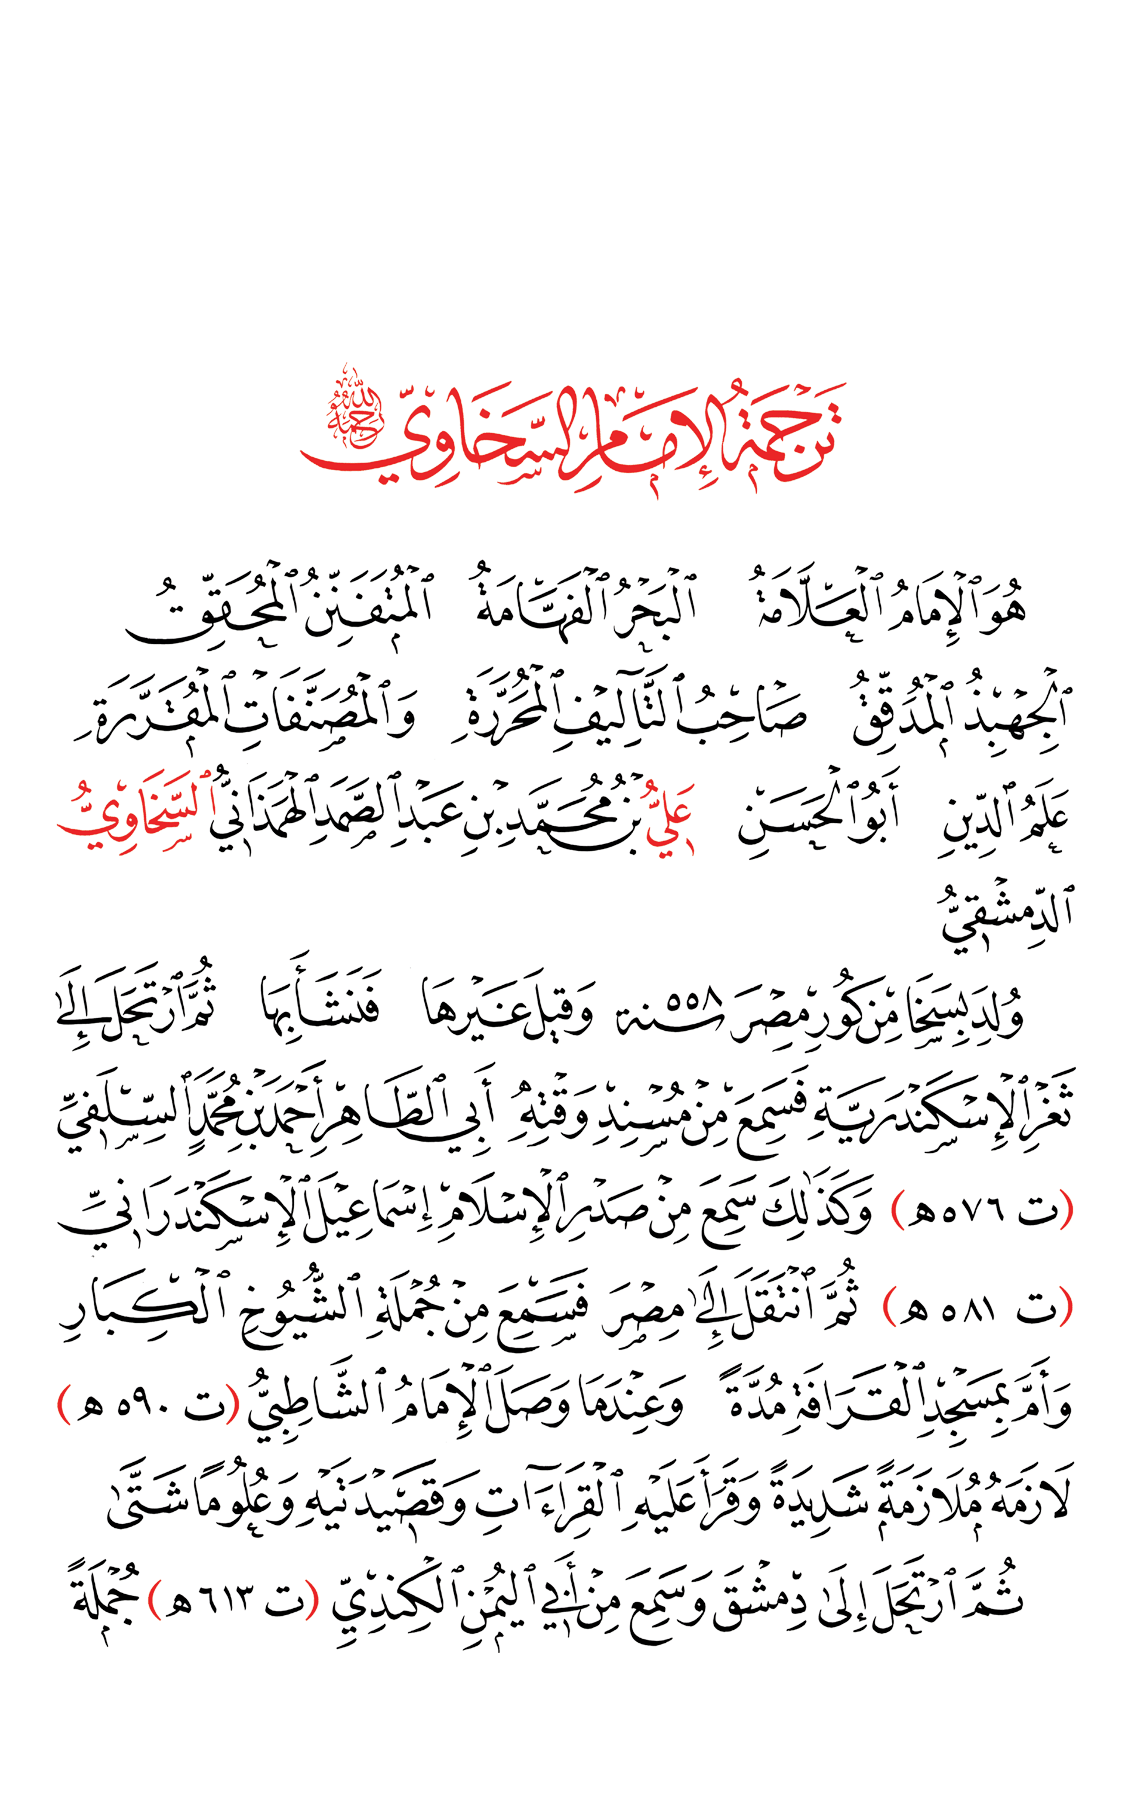 تَرْجَمَةُ الإِمَامِ السَّخَاوِيِّ رَحِمَهُ اللَّهُ
هُوَ ٱلْإِمَامُ ٱلْعَلَّامَةُ ٱلْبَحْرُ ٱلْفَهَّامَةُ ٱلْمُتَفَنِّنُ ٱلْمُحَقِّقُ
ٱلْجِهْبِذُ ٱلْمُدَقِّقُ صَاحِبُ ٱلتَّآلِيفِ ٱلْمُحَرَّرَةِ وَٱلْمُصَنَّفَاتِ ٱلْمُقَرَّرَةِ
عَلَمُ ٱلدِّينِ أَبُو ٱلْحَسَنِ عَلِيُّ بْنُ مُحَمَّدِ بْنِ عَبْدِ ٱلصَّمَدِ ٱلْهَمَذَانِيُّ ٱلسَّخَاوِيُّ
ٱلدِّمِشْقِيُّ
وُلِدَ بِسَخَا مِنْ كُورِ مِصْرَ سنة ٥٥٨ وَقِيلَ غَيْرهَا فَنَشَأَ بِهَا ثُمَّ ٱرْتَحَلَ إِلَىٰ
ثَغْرِ ٱلْإِسْكَنْدَرِيَّةِ فَسَمِعَ مِنْ مُسْنِدِ وَقْتِهِ أَبِي ٱلطَّاهِرِ أَحْمَدَ بْنِ مُحَمَّدٍ ٱلسِّلَفِيِّ
(ت ٥٧٦ ه) وَكَذَٰلِكَ سَمِعَ مِنْ صَدْرِ ٱلْإِسْلَامِ إِسْمَاعِيْلَ ٱلْإِسْكَنْدَرَانِيِّ
(ت ٥٨١ ه) ثُمَّ ٱنْتَقَلَ إِلَىٰ مِصْرَ فَسَمِعَ مِنْ جُمْلَةِ ٱلشُّيُوخِ ٱلْكِبَارِ
وَأَمَّ بِمَسْجِدِ ٱلْقَرَافَةِ مُدَّةً وَعِنْدَمَا وَصَلَ ٱلْإِمَامُ ٱلشَّاطِبِيُّ (ت ٥٩٠ ه)
لَازَمَهُ مُلَازَمَةً شَدِيدَةً وَقَرَأَ عَلَيْهِ ٱلْقِرَاءَاتِ وَقَصِيْدَتَيْهِ وَعُلُومًا شَتَّىٰ
ثُمَّ ٱرْتَحَلَ إِلَىٰ دِمشْقَ وَسَمِعَ مِنْ أَبِي ٱلْيُمْنِ ٱلْكِنْدِيِّ (ت ٦١٣ ه) جُمْلَةً